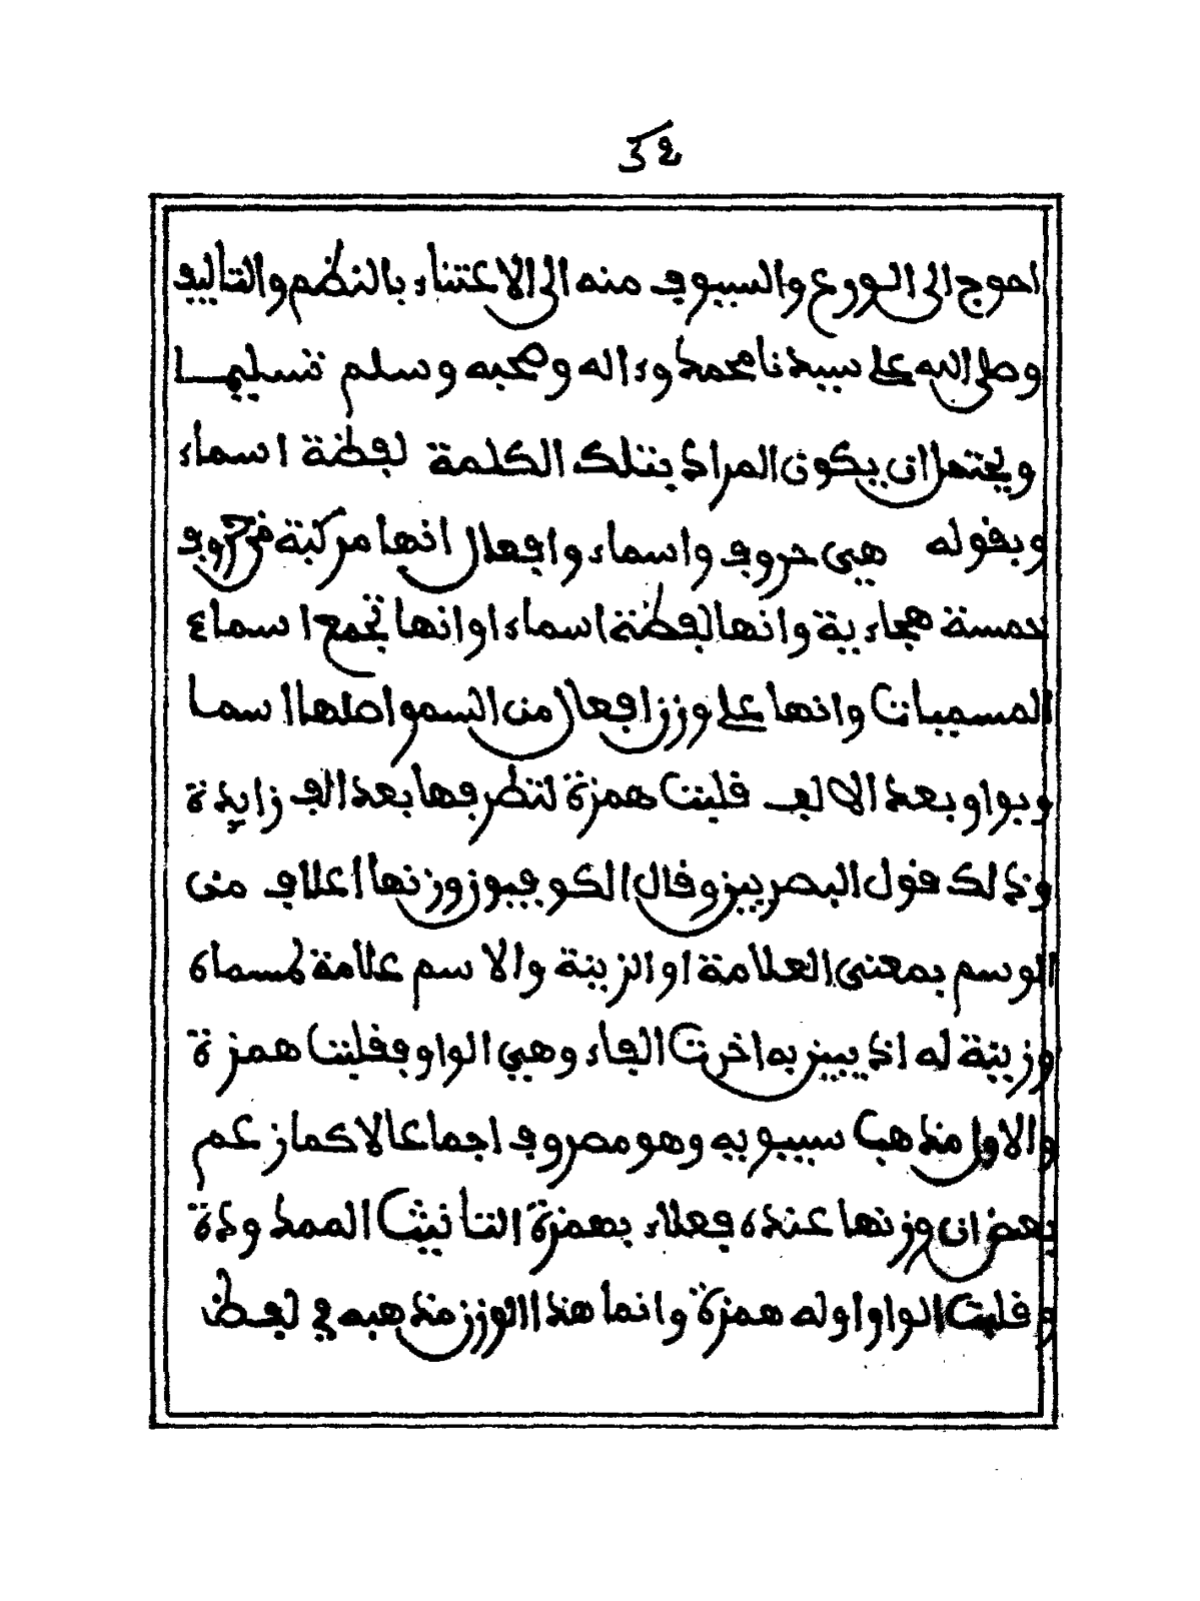 34
احوج الى الورع والسيوف منه الى الاعتناء بالنظم والتأليف
وصلى الله على سيدنا محمد وءاله وصحبه وسلم تسليما
ويحتمل ان يكون المراد بتلك الكلمة لفظة اسماء
وبقوله هي حروف واسماء وافعال انها مركبة من حروف
خمسة هجاءية وانها لفظة اسماء او انها تجمع اسماء
المسميات وانها على وزن افعال من السمو اصلها اسما
وبواو بعد الالف قلبت همزة لتطرفها بعد الف زايدة
وذلك قول البصريين وقال الكوفيون وزنها اعلاف من
الوسم بمعنى العلامة او الزينة والاسم علامة لمسماه
وزينة له اذ يبين به اخرت الفاء وهي الواو فقلبت همزة
والاول مذهب سيبويه وهو مصروف اجماعا لا كما زعم
بعض ان وزنها عنده فعلاء بهمزة التأنيث الممدودة
وقلبت الواو اوله همزة وانما هذا الوزن مذهبه في لفظ